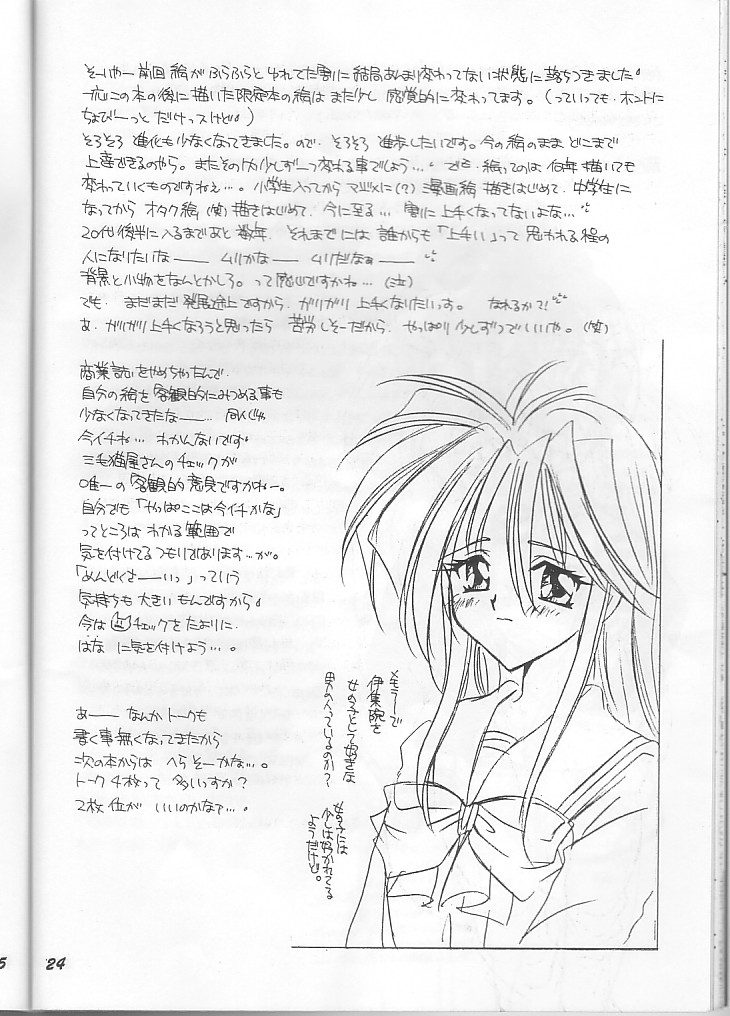 そーいやー前回絵がふらふらとゆれてた割に結局あんまり変わってない状態に落ちつきました。
一応この本の後に描いた限定本の絵はまた少し感覚的に変わってます。(っていっても・ホントに
ちょびーっとだけっスけど。)
そろそろ進化も少なくなってきました。ので、そろそろ進歩したいです。今の絵のままどこまで
上達できるのやら。またそのうち少しずーつ変わる事でしょう…。でも・絵ってのは何年描いても
変わっていくものですねぇ…。小学生入ってからマジメに(?)漫画絵描きはじめて、中学生に
なってからオタク絵(笑)描きはじめて、今に至る…。割に上手くなってないよな…。
20代後半に入るまであと数年、それまでには誰からも「上手い」って思われる程の
人になりたいなーー ムリかなー ムリだなぁー
背景と小物をなんとかしろ。って感じですかね…(泣)
でも、まだまだ発展途上ですから、ガリガリ上手くなりたいっす。なれるか?!
あ、ガリガリ上手くなろうと思ったら 苦労しそーだから、やっぱり少しずつでいいや。(笑)
商業誌をやめちゃったんで、
自分の絵を客観的にみつめる事も
少なくなってきたなー…。同人じゃ
今イチね…わかんないです。
三毛猫屋さんのチェックが
唯一の客観的意見ですかねー。
自分でも「やっぱここは今イチかな」
ってところはわかる範囲で
気を付けてるつもりではあります…が。
「めんどくさーーいっ」っていう
気持ちも大きいもんですから。
今は チェックをたよりに、
はな に気を付けよう…。
あーー なんかトークも
書く事無くなってきたから
次の本からは へらそーかな…。
トーク4枚って 多いっすか?
2枚位が いいのかなァ…。
メモラーで
伊集院を
女の子として好きな
男の人っているのか?
女の子には
少しは好かれてる
ようだけど。
5
24